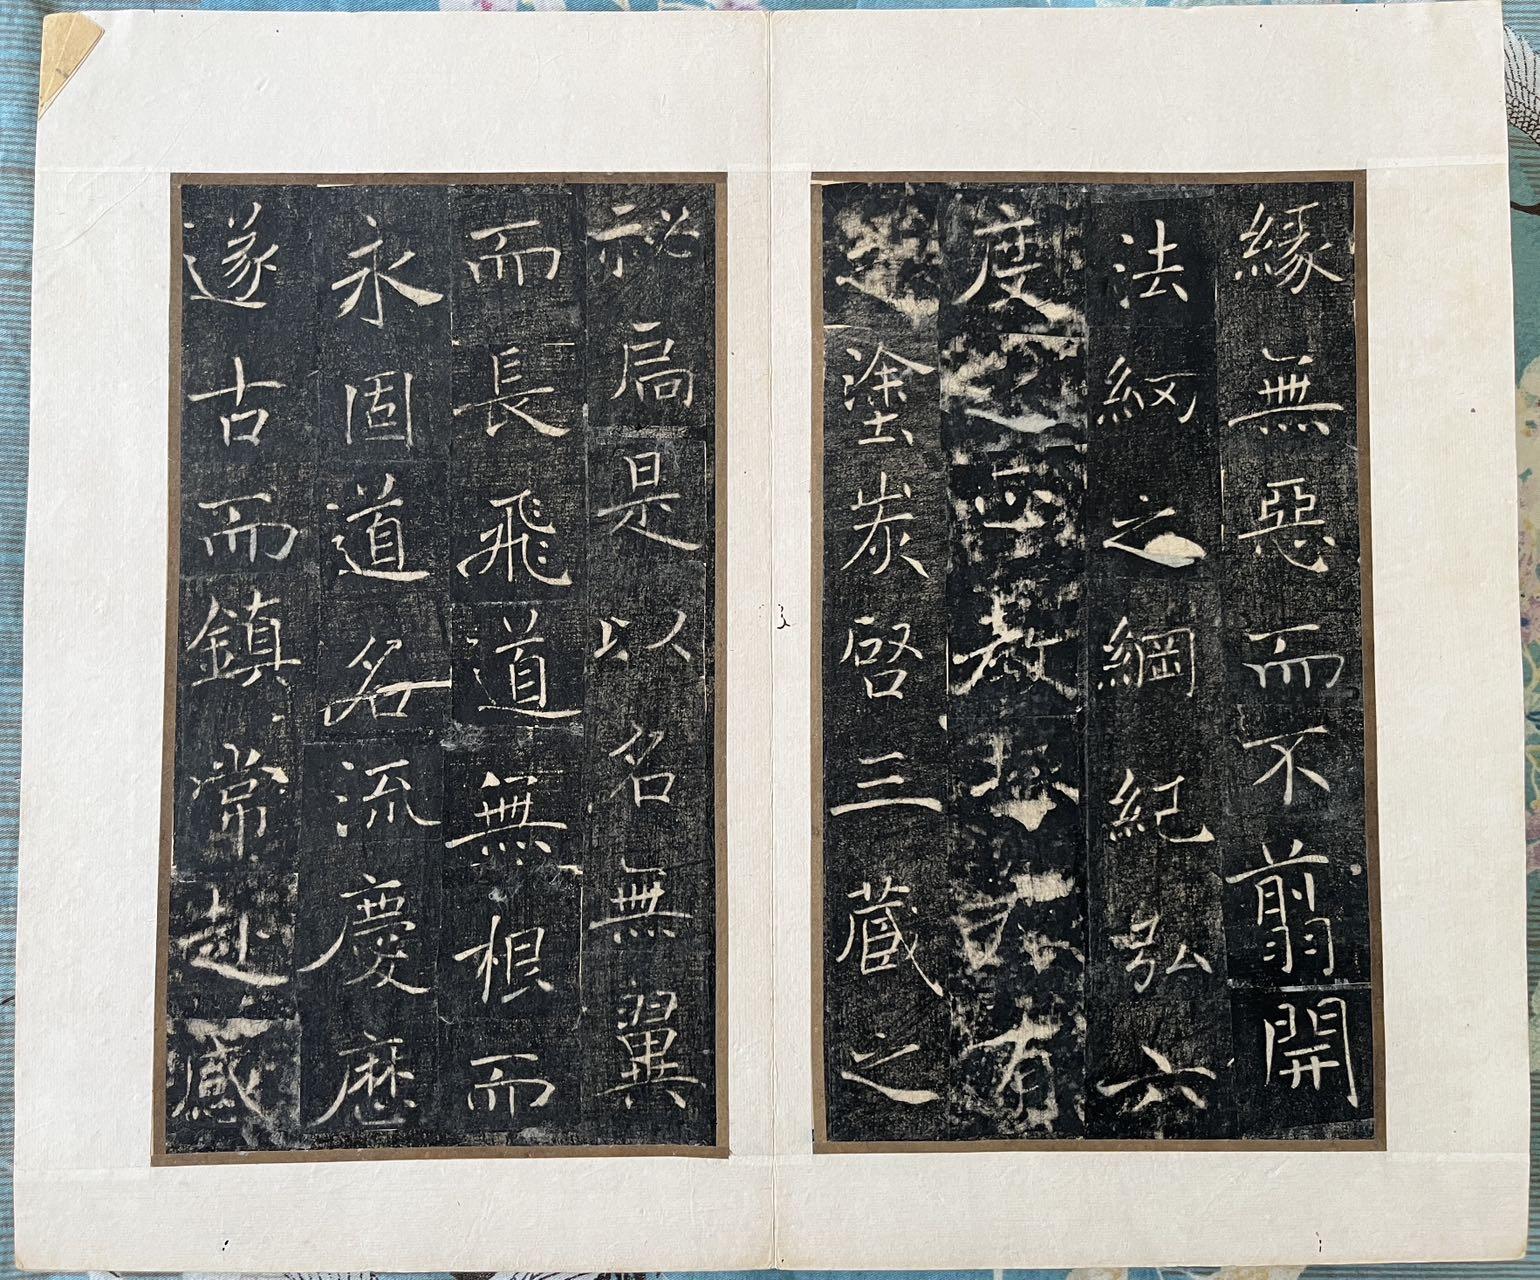 緣無惡而不翦開
法網之綱紀弘六
度之正教拯群有
之塗炭啓三藏之
祕扃是以名無翼
而長飛道無根而
永固道名流慶歷
遂古而鎮常赴感